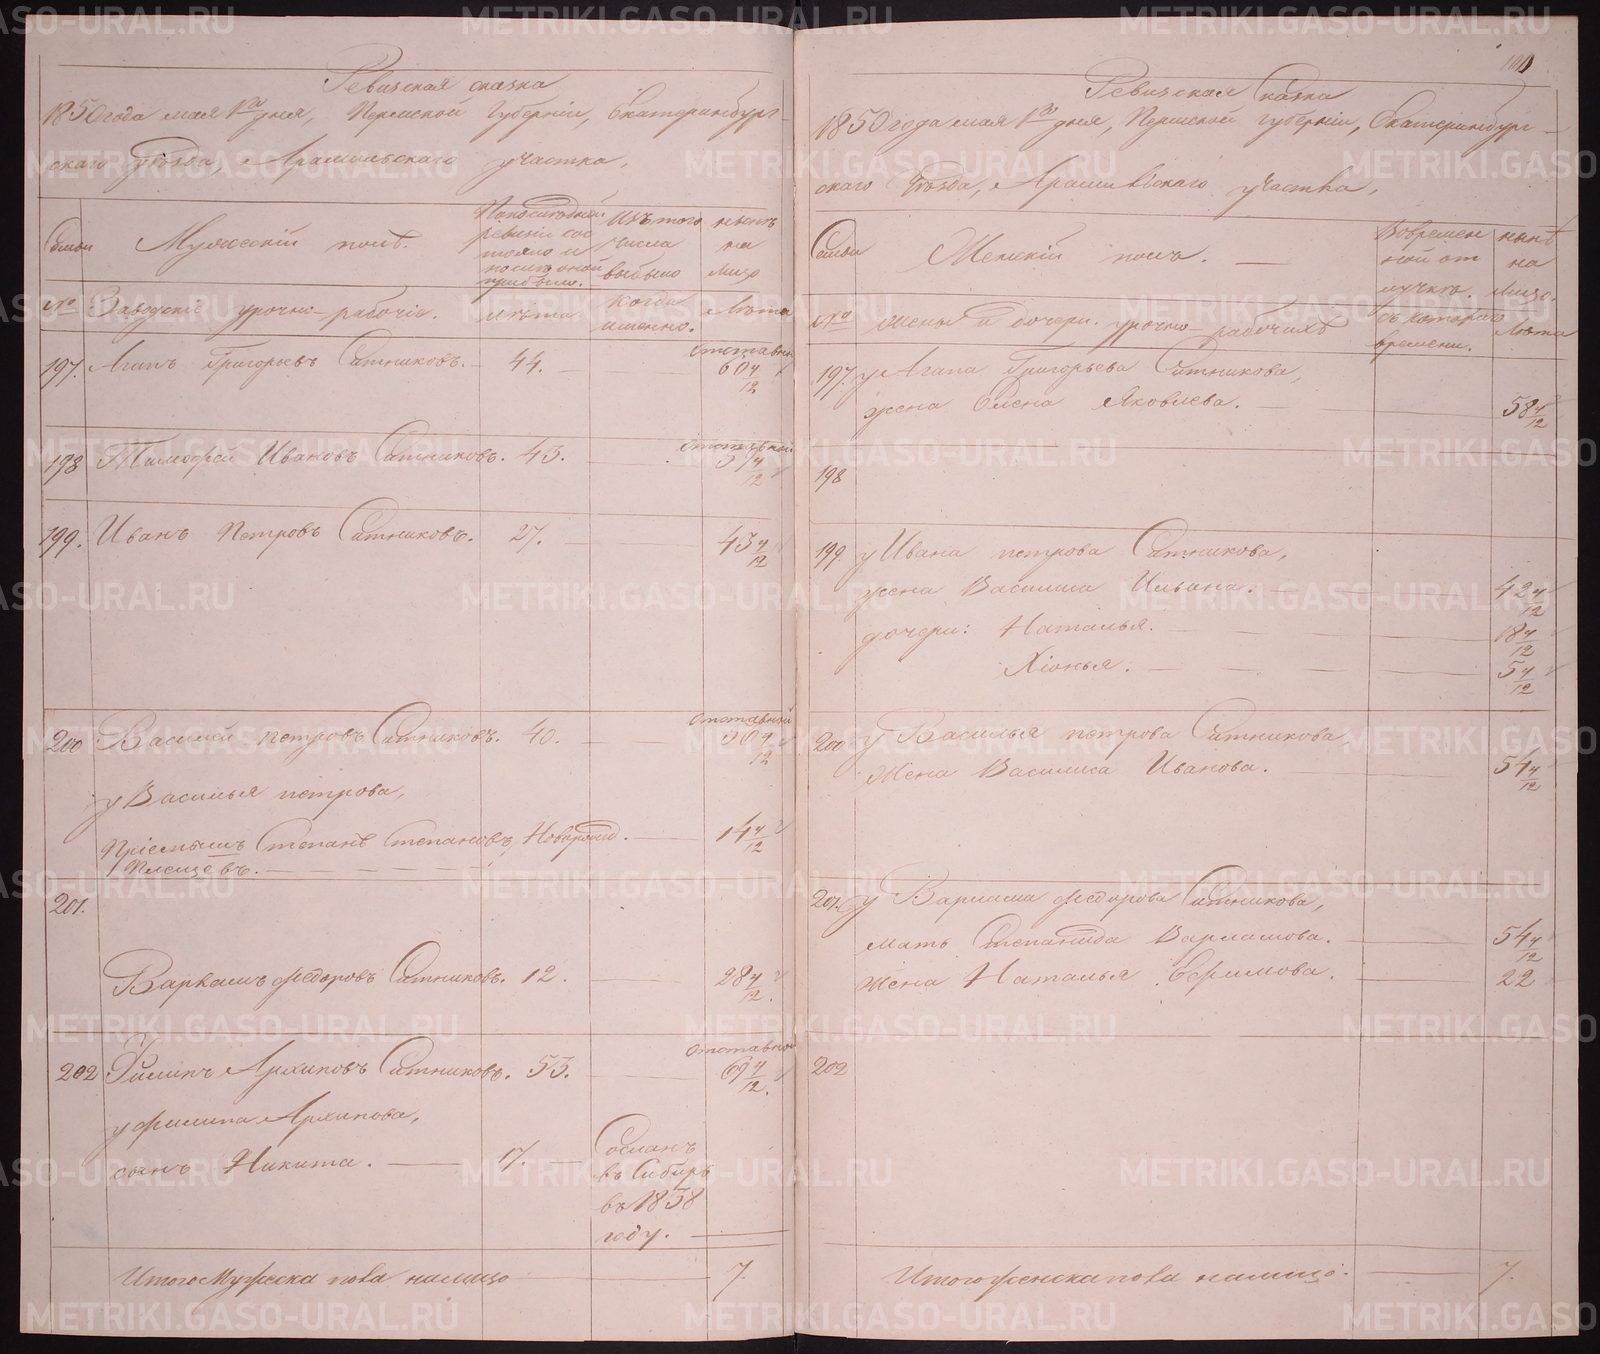 Ревизская сказка
1850 года мая 1го дня, Пермской Губернiи, Екатеринбург-
скаго уѣзда, Арамильскаго участка,
Семьи
Мужескiй полъ.
По последней
ревизiи сос
тояло и
после оной
прибыло.
Изъ того
числа
выбыло
нынѣ
на
лицо
№
Заводскiе урочно-рабочiе.
Лѣта
Когда
именно.
Лѣта
197. Агапъ Григорьевъ Ситниковъ. 44. отставной 60 4/12
198 Тимофей Ивановъ Ситниковъ. 43. отставной 59 4/12
199. Иванъ Петровъ Ситниковъ. 27. 43 4/12
200 Василей петровъ Ситниковъ. 40. отставной 56 4/12
у Василья петрова,
Прiемышъ Степанъ Степановъ, Новорожд. 14 4/12
Плещевъ.
201.
Варламъ Федоровъ Ситниковъ. 12. 28 4/12.
202 Филипъ Архиповъ Ситниковъ. 53. отставной 69 4/12.
у Филипа Архипова,
сынъ Никита. 17. Сосланъ
въ Сибирь
въ 1838
году.
Итого Мужеска пола налицо 7.
Ревизская Сказка
1850 года мая 1го дня, Пермской Губернiи, Екатеринбург-
скаго уѣзда, Арамильскаго участка,
Семьи
Женскiй полъ.
Во времен
ной от
лучкѣ.
нынѣ
на
лицо.
№
жены и дочери урочно-рабочихъ
съ котораго
времени.
Лѣта
197. у Агапа Григорьева Ситникова,
жена Олена Яковлева. 58 4/12
198
199 у Ивана петрова Ситникова,
жена Василиса Ильина. 42 4/12
дочери: Наталья. 18 4/12
Хiонья. 5 4/12
200 у Василья петрова Ситникова,
Жена Василиса Иванова. 54 4/12
201. у Варлама Федорова Ситникова,
мать Степанида Варламова. 54 4/12
Жена Наталья Ефимова. 22
202
Итого женска пола налицо. 7.
METRIKI.GASO-URAL.RU